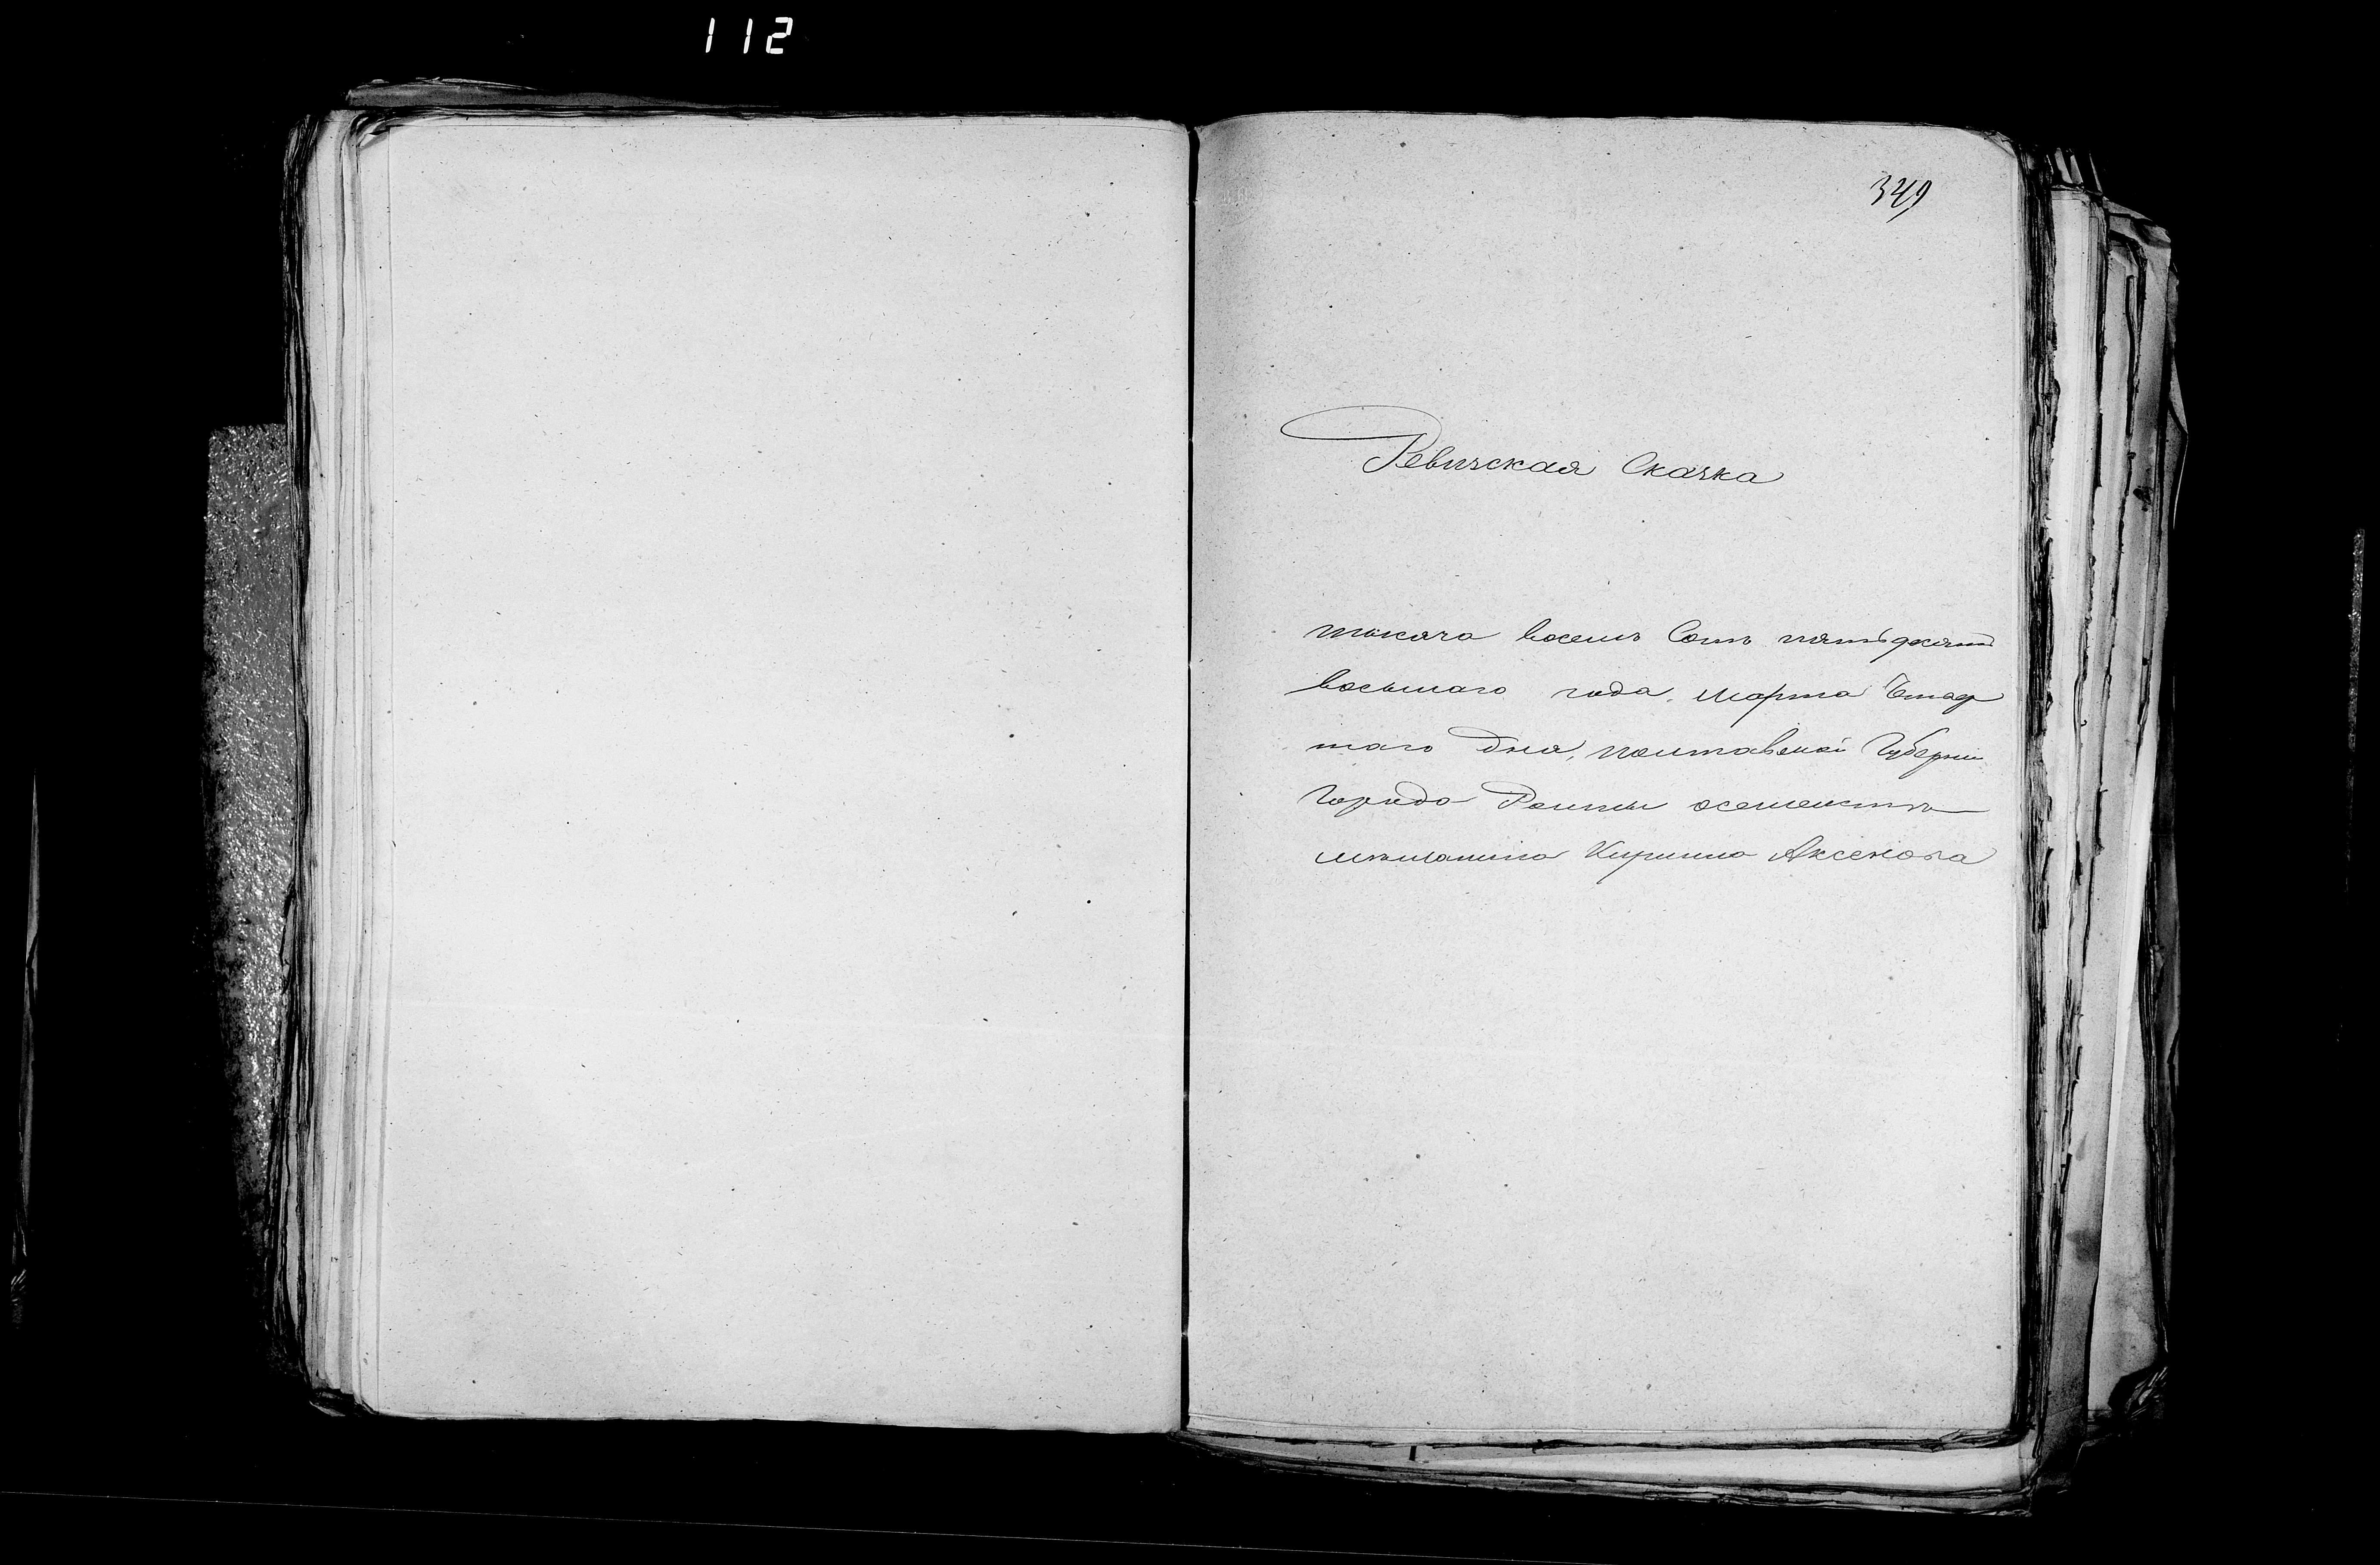 112
349
Ревизская Сказка
тысяча восемь Сотъ пятьдесятъ
восьмаго года, марта
таго Дня, полтавской Губерни
Города Ромны осемействѣ
мѣщанина Кирилла Аксенова